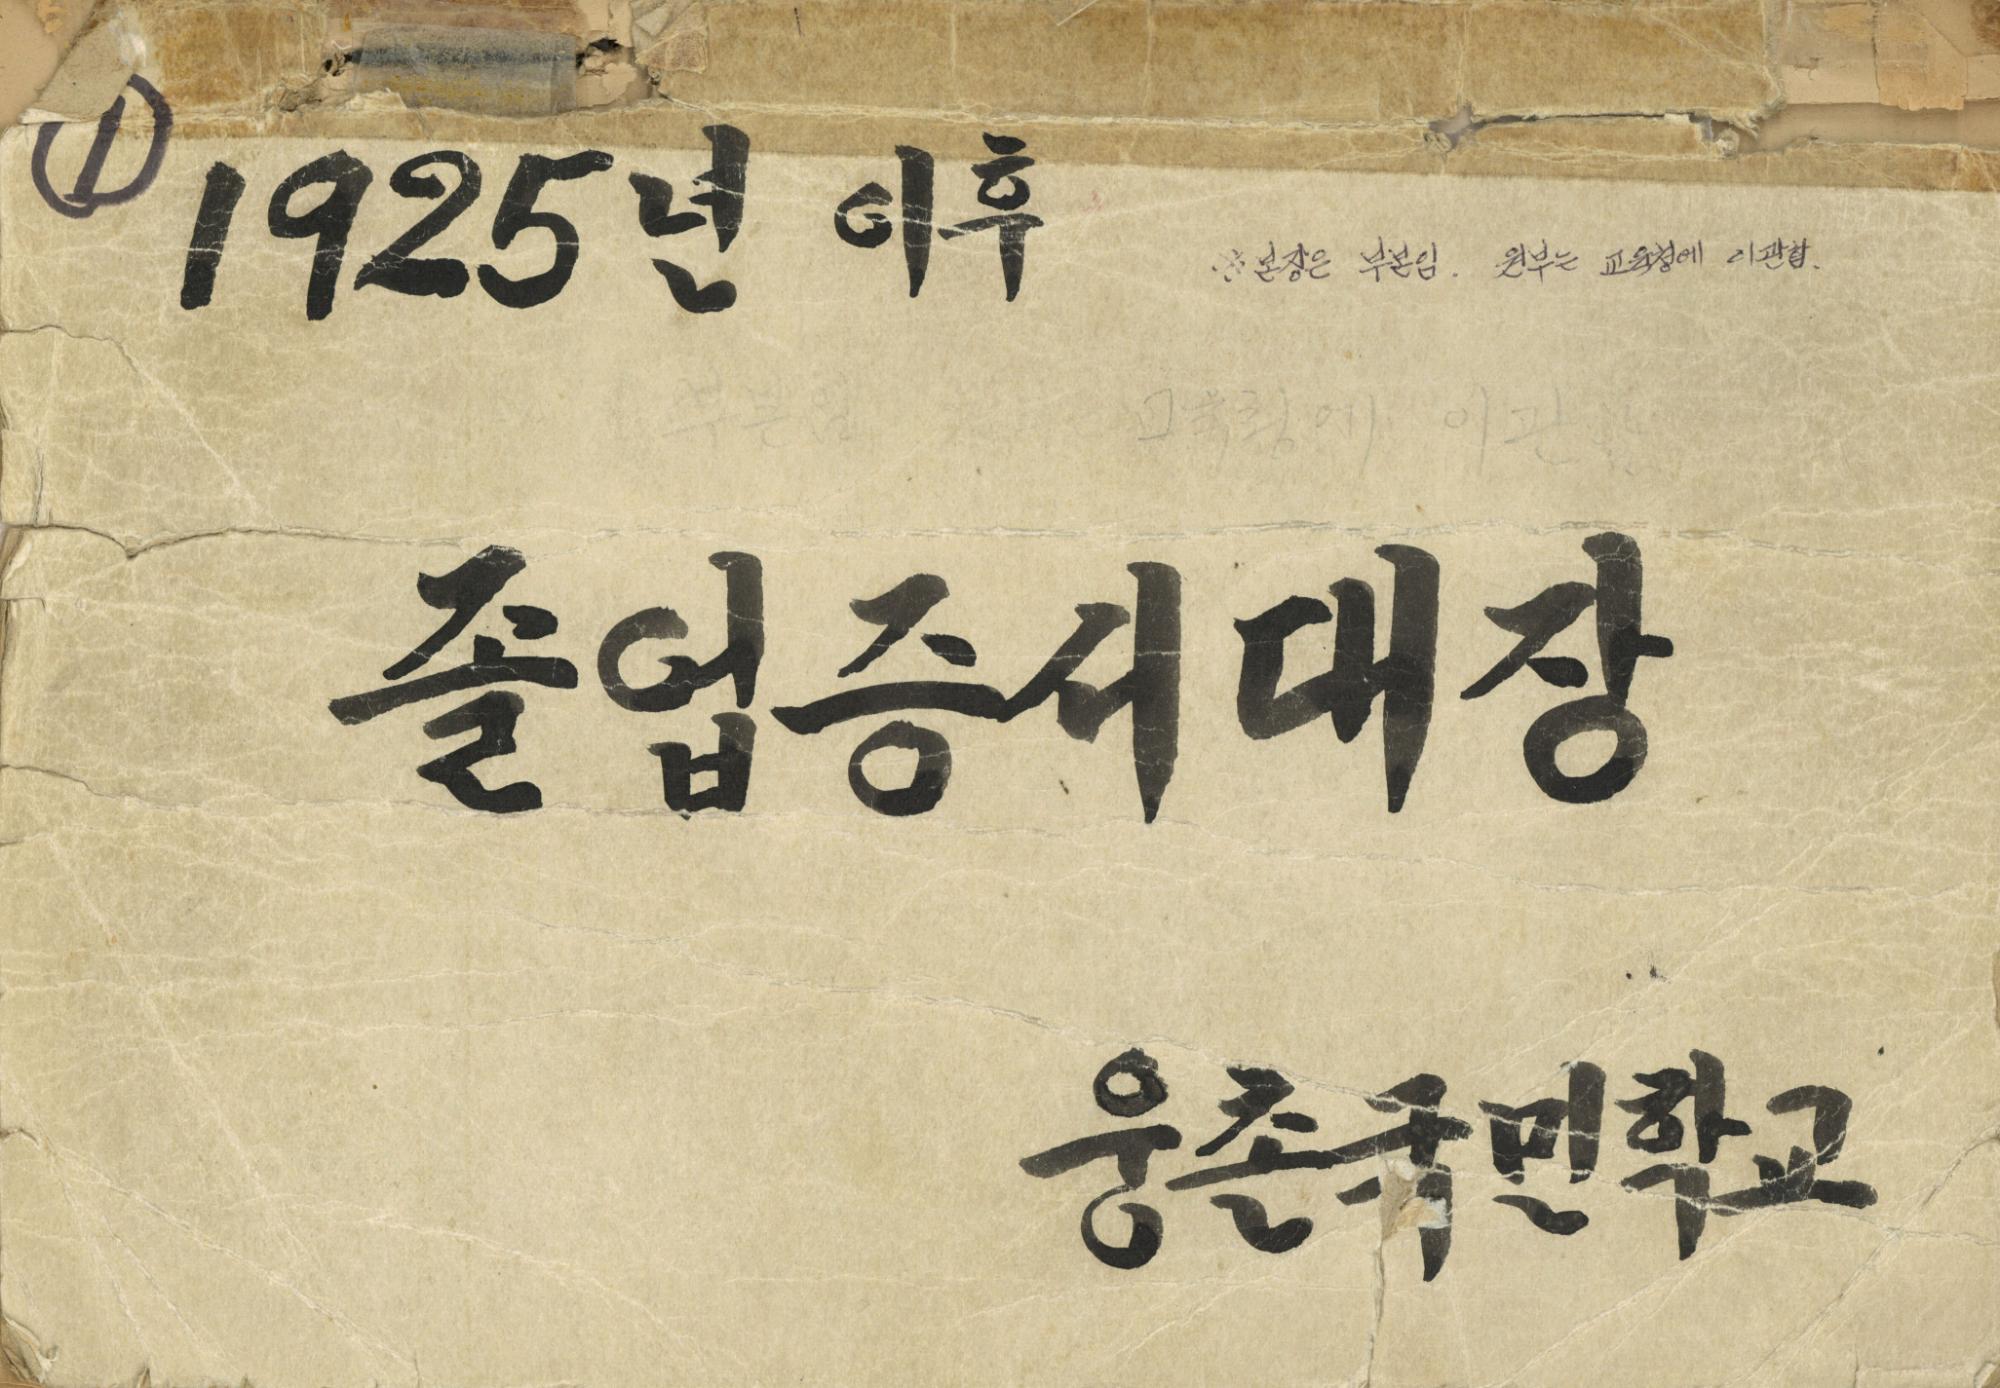 ①
1925년 이후
※ 본장은 부본임. 원부는 교육청에 이관함.
부본임 교육청에 이관
졸업증서대장
웅촌국민학교